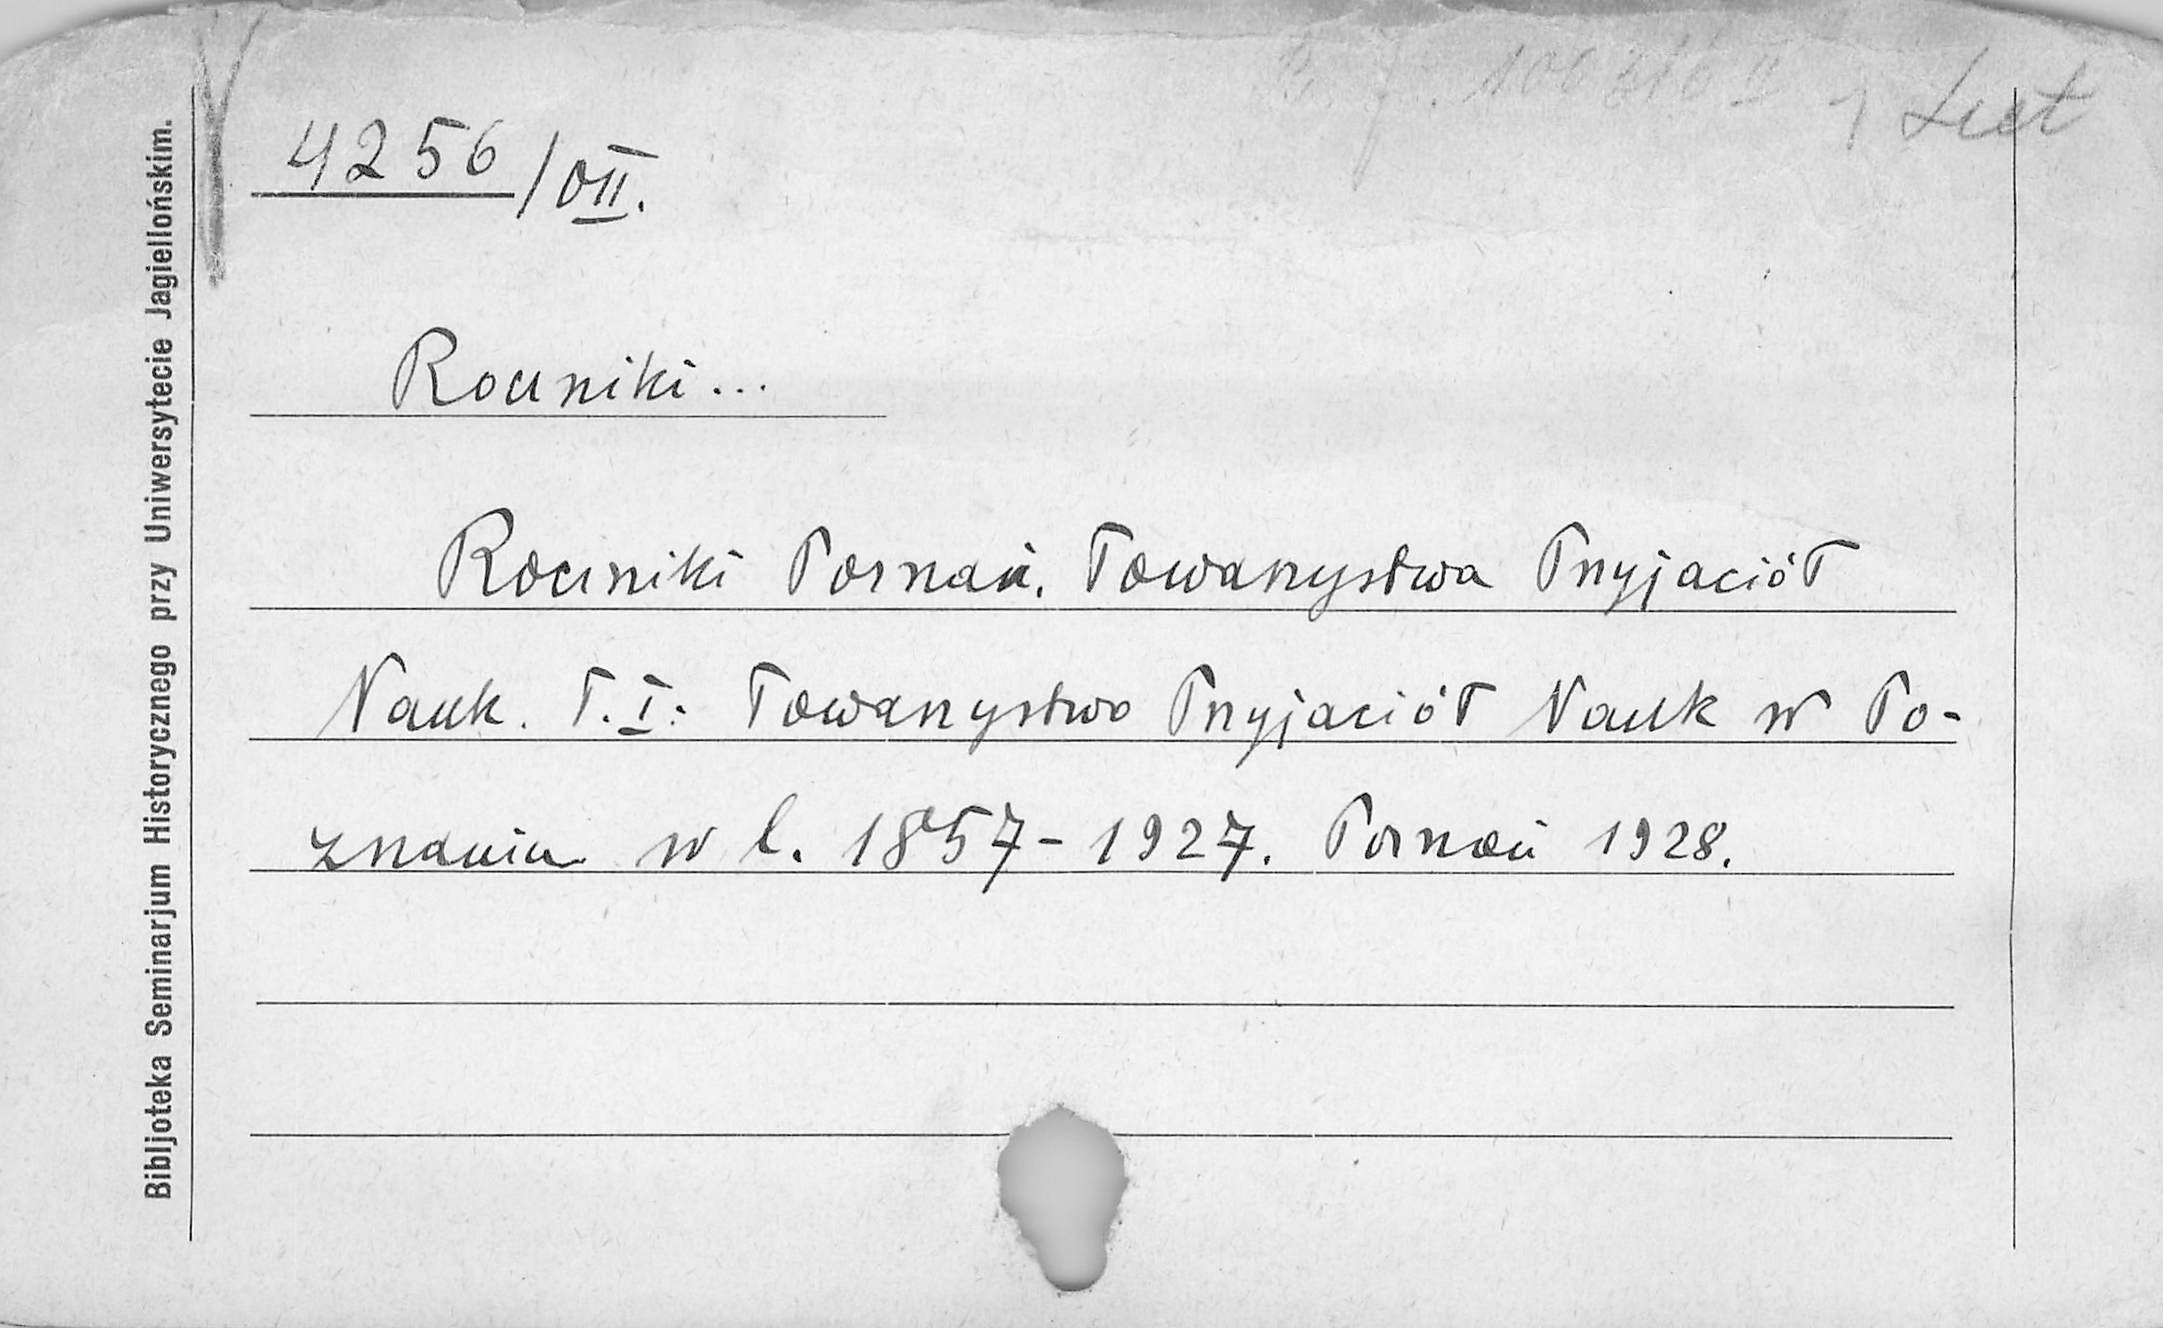 4256/OII.
Roczniki...
Roczniki Poznań. Towarzystwa Przyjaciół
Nauk. T. I: Towarzystwo Przyjaciół Nauk w Po-
znaniu w l. 1857-1927. Poznań 1928.
Bibljoteka Seminarjum Historycznego przy Uniwersytecie Jagiellońskim.